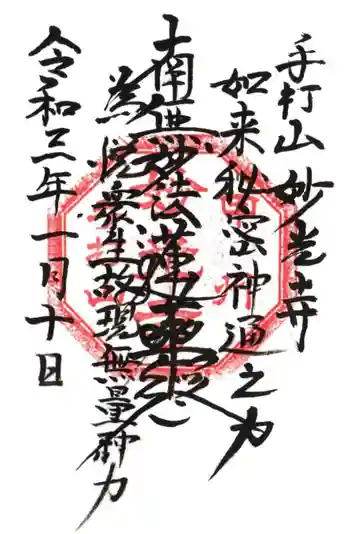 手打山妙光寺
如来秘密神通之力
南無妙法蓮華経
為悦衆生故現無量神力
令和三年一月十日